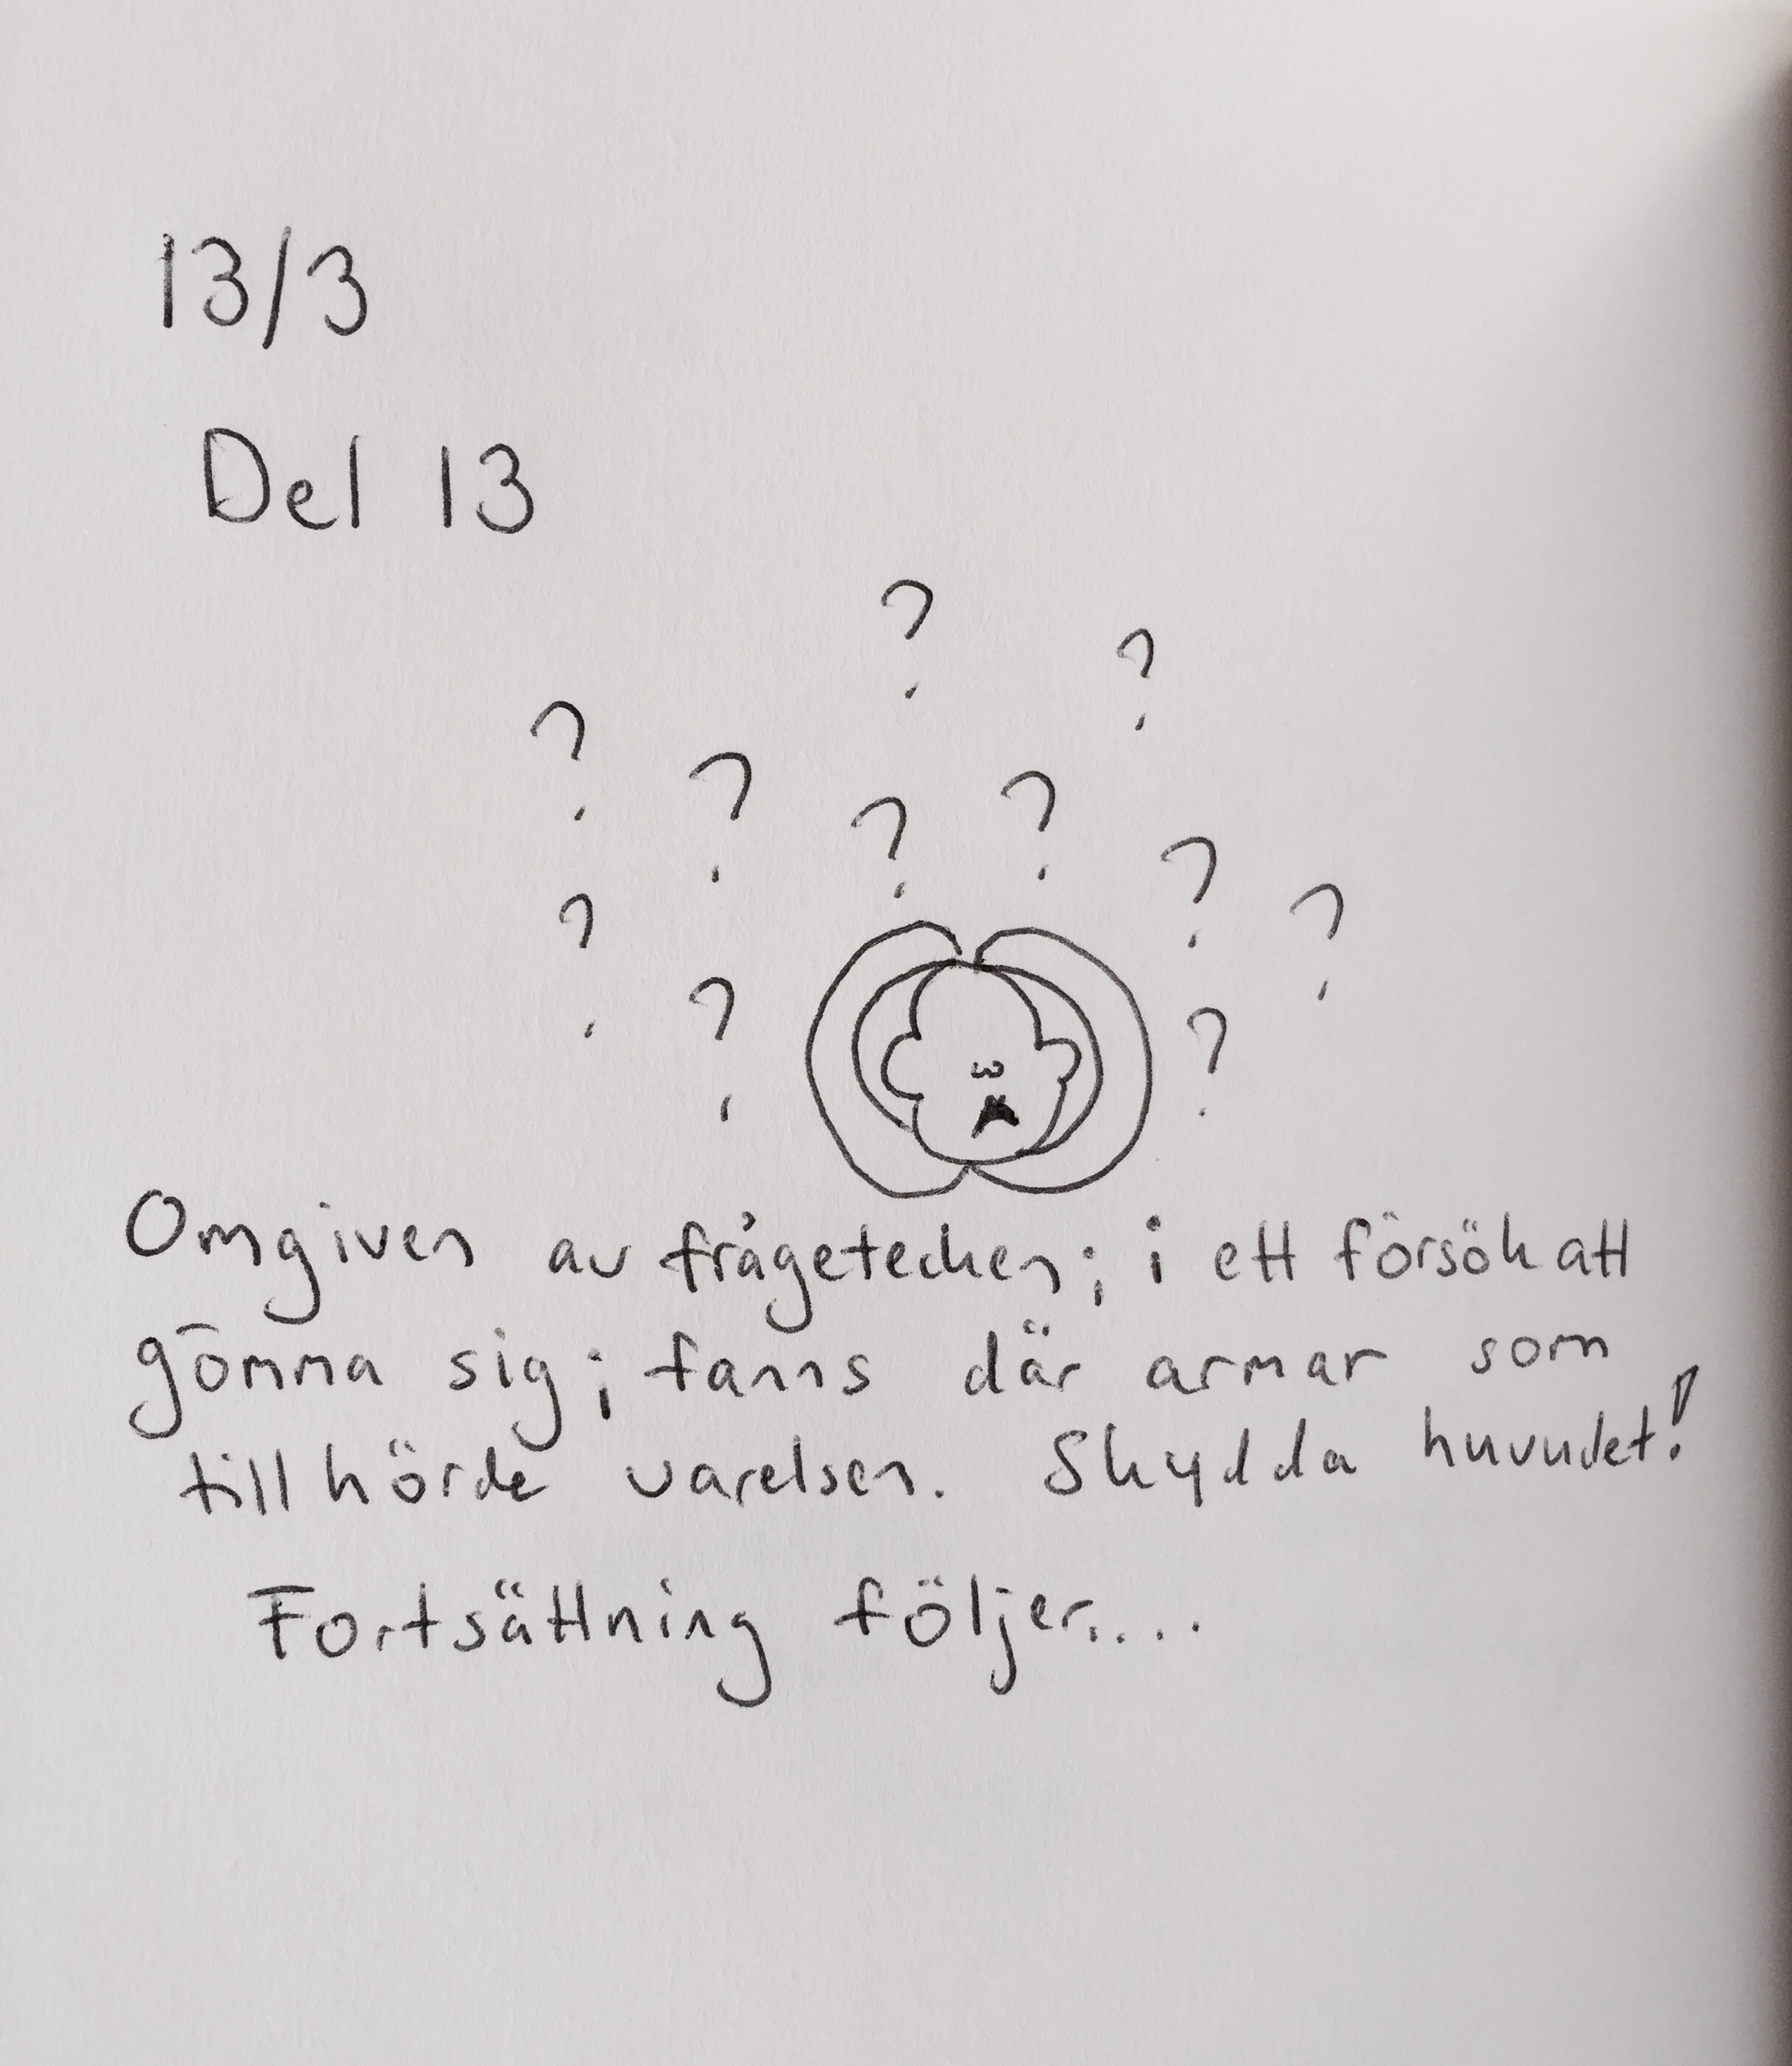 13/3
Del 13
?
?
?
?
?
?
?
?
?
?
?
Omgiven av frågetecken; i ett försök att
gömma sig; fanns där armar som
tillhörde varelsen. Skydda huvudet!
Fortsättning följer....